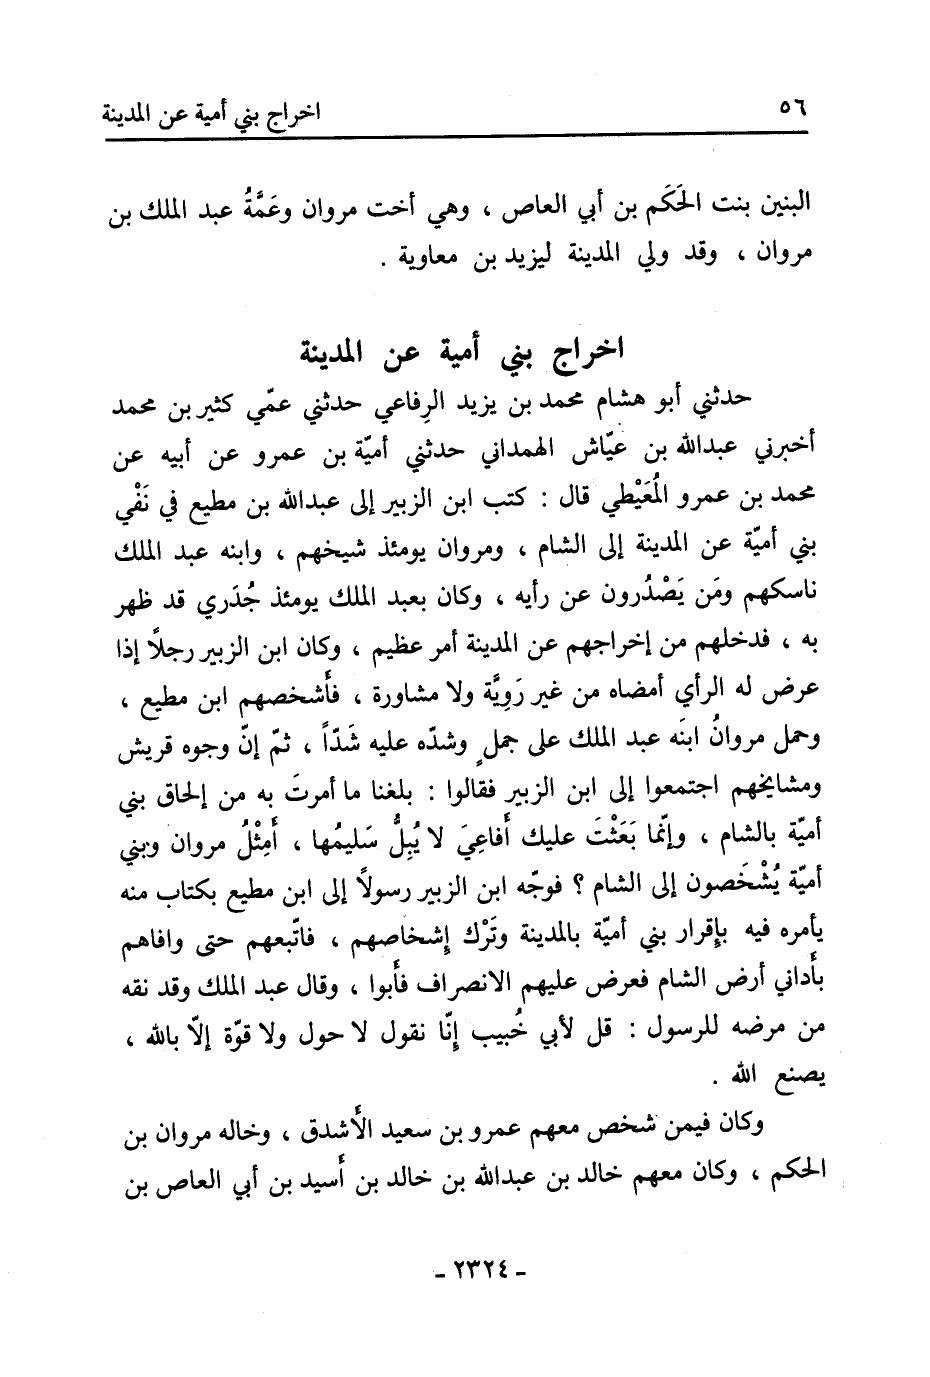 ٥٦ اخراج بني أمية عن المدينة
البنين بنت الحَكَم بن أبي العاص ، وهي أخت مروان وعَمَّةُ عبد الملك بن
مروان ، وقد ولي المدينة ليزيد بن معاوية .
اخراج بني أمية عن المدينة
حدثني أبو هشام محمد بن يزيد الرِفاعي حدثني عمّي كثير بن محمد
أخبرني عبدالله بن عيّاش الهمداني حدثني أميّة بن عمرو عن أبيه عن
محمد بن عمرو المُعَيْطي قال : كتب ابن الزبير إلى عبدالله بن مطيع في نَفْي
بني أميّة عن المدينة إلى الشام ، ومروان يومئذ شيخهم ، وابنه عبد الملك
ناسكهم ومَن يَصْدُرون عن رأيه ، وكان بعبد الملك يومئذ جُدَري قد ظهر
به ، فدخلهم من إخراجهم عن المدينة أمر عظيم ، وكان ابن الزبير رجلاً إذا
عرض له الرأي أمضاه من غير رَوِيَّة ولا مشاورة ، فأشخصهم ابن مطيع ،
وحمل مروانُ ابنَه عبد الملك على جملٍ وشدّه عليه شَدّاً ، ثمّ إنّ وجوه قريش
ومشايخهم اجتمعوا إلى ابن الزبير فقالوا : بلغنا ما أمرتَ به من إلحاق بني
أميّة بالشام ، وإنّما بَعَثْتَ عليك أفاعِيَ لا يُبِلُّ سَليمُها ، أمِثْلُ مروان وبني
أميّة يُشْخَصون إلى الشام ؟ فوجّه ابن الزبير رسولاً إلى ابن مطيع بكتاب منه
يأمره فيه بإقرار بني أميّة بالمدينة وتَرْك إشخاصهم ، فاتّبعهم حتى وافاهم
بأداني أرض الشام فعرض عليهم الانصراف فأبوا ، وقال عبد الملك وقد نقه
من مرضه للرسول : قل لأبي خُبيب إنّا نقول لا حول ولا قوّة إلاّ بالله ،
يصنع الله .
وكان فيمن شخص معهم عمرو بن سعيد الأشدق ، وخاله مروان بن
الحكم ، وكان معهم خالد بن عبدالله بن خالد بن أسيد بن أبي العاص بن
- ٢٣٢٤ -